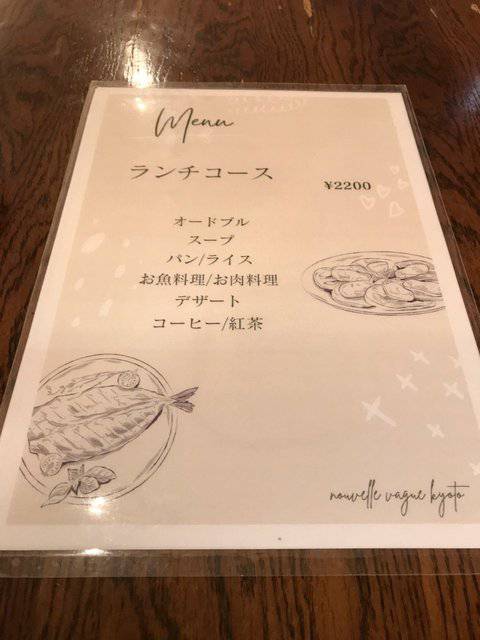 Menu
ランチコース
¥2200
オードブル
スープ
パン/ライス
お魚料理/お肉料理
デザート
コーヒー/紅茶
nouvelle vague kyoto